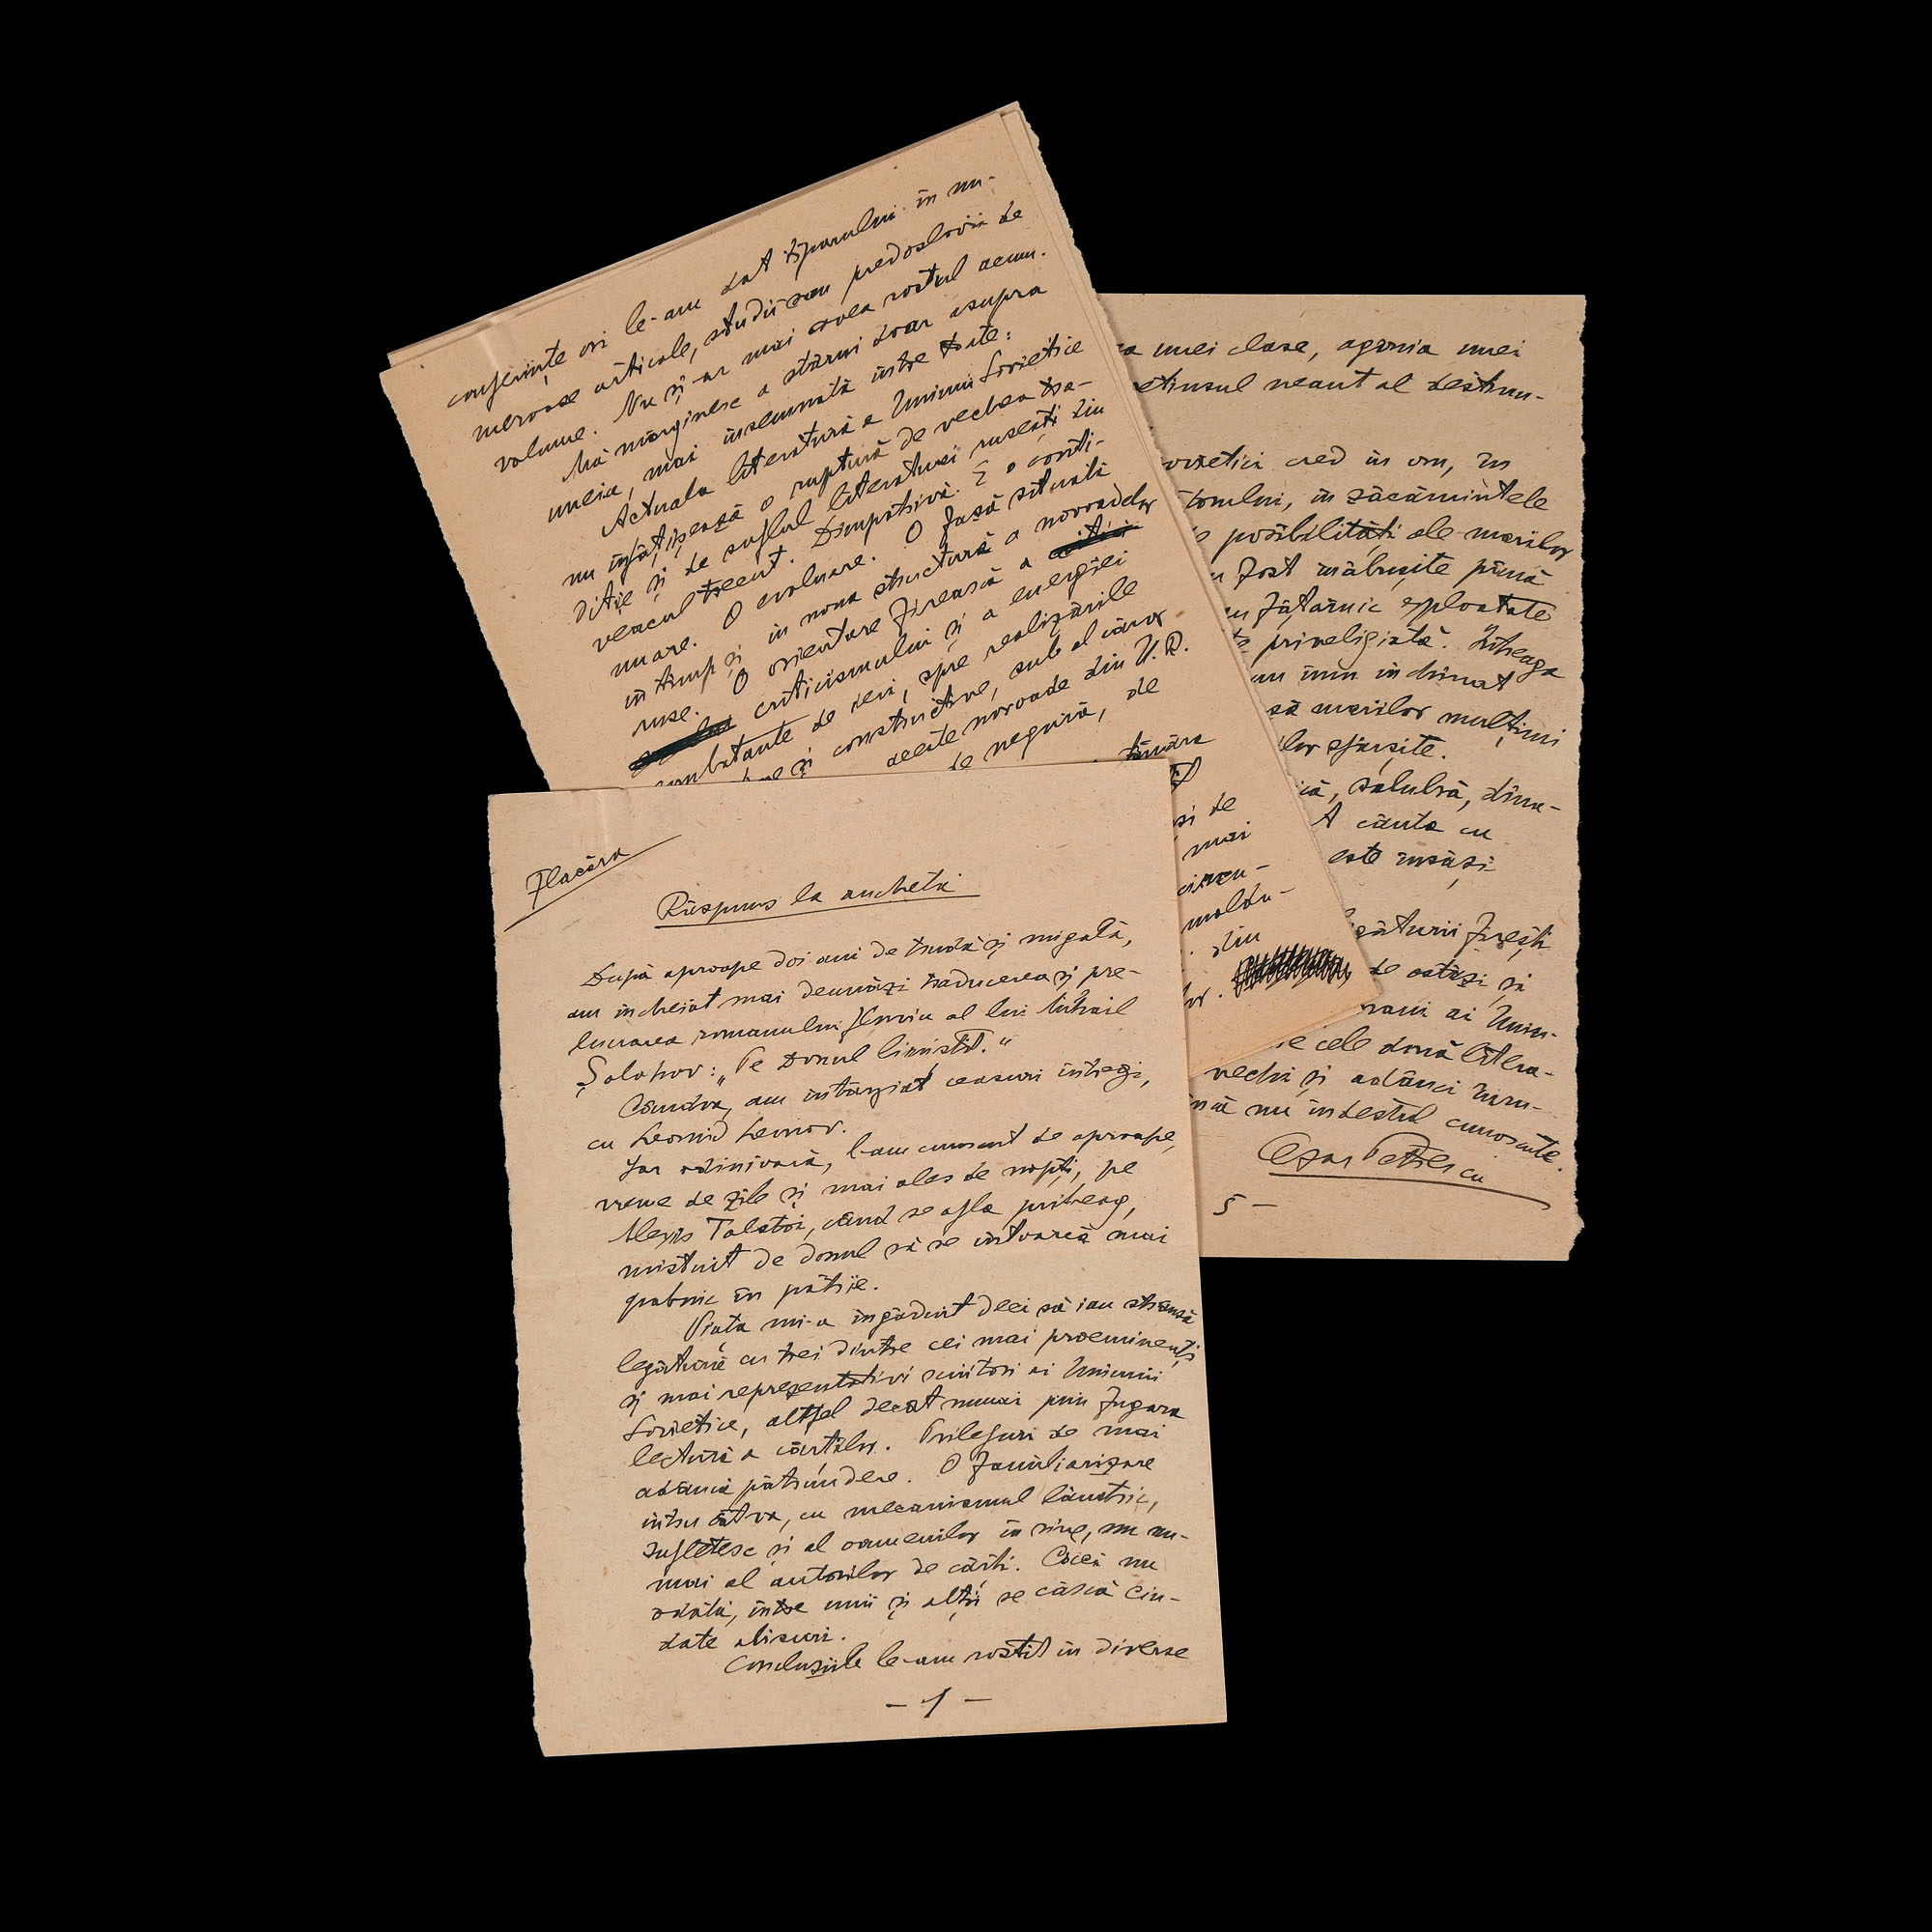 Flacăra
Răspuns la anchetă
După aproape doi ani de trudă și migală,
am încheiat mai deunăzi traducerea și pre-
lucrarea romanului fluviu al lui Mihail
Șolohov: „Pe Donul liniștit.“
Cândva, am întârziat ceasuri întregi,
cu Leonid Leonov.
Iar odinioară, l-am cunoscut de aproape,
vreme de zile și mai ales de nopți, pe
Alexis Tolstoi, când se afla pribeag,
mistuit de dorul să se întoarcă mai
grabnic în patrie.
Viața mi-a îngăduit deci să iau strânsă
legătură cu trei dintre cei mai proeminenți
și mai reprezentativi scriitori ai Uniunii
Sovietice, altfel decât numai prin fugara
lectură a cărților. Prilejuri de mai
adâncă pătrundere. O familiarizare
întru câtva, cu mecanismul lăuntric,
sufletesc și al oamenilor în sine, nu nu-
mai al autorilor de cărți. Căci nu
odată, între unii și alții se cască ciu-
date abisuri.
Concluziile le-am rostit în diverse
- 1 -
conferințe ori le-am dat tiparului în nu-
meroase articole, studii sau predoslovii de
volume. Nu și-ar mai avea rostul acum.
Mă mărginesc a stărui doar asupra
uneia, mai însemnată între toate:
Actuala literatură a Uniunii Sovietice
nu înfățișează o ruptură de vechea tra-
diție și de suflul literaturei rusești din
veacul trecut. Dimpotrivă. E o conti-
nuare. O evoluare. O fază situată
în timp și în noua structură a noroadelor
ruse. O orientare firească a
criticismului și a energiei
combatante de ieri, spre realizările
și constructive, sub al căror
aceste noroade din U.R.
de negură, de
tânără
și de
mai
din
a unei clase, agonia unei
neant al destinu-
cred in om, in
în zăcămintele
posibilități ale marilor
fost înăbușite până
fățarnic exploatate
priveligiată. Întreaga
un imn închinat
mulțimi
sfârșite.
salubră, dina-
A cânta cu
este însăși
firești
de ostași și
ai Uniu-
cele două litera-
vechi și adânci
nu îndestul cunoscute.
Cezar Petrescu
5 -